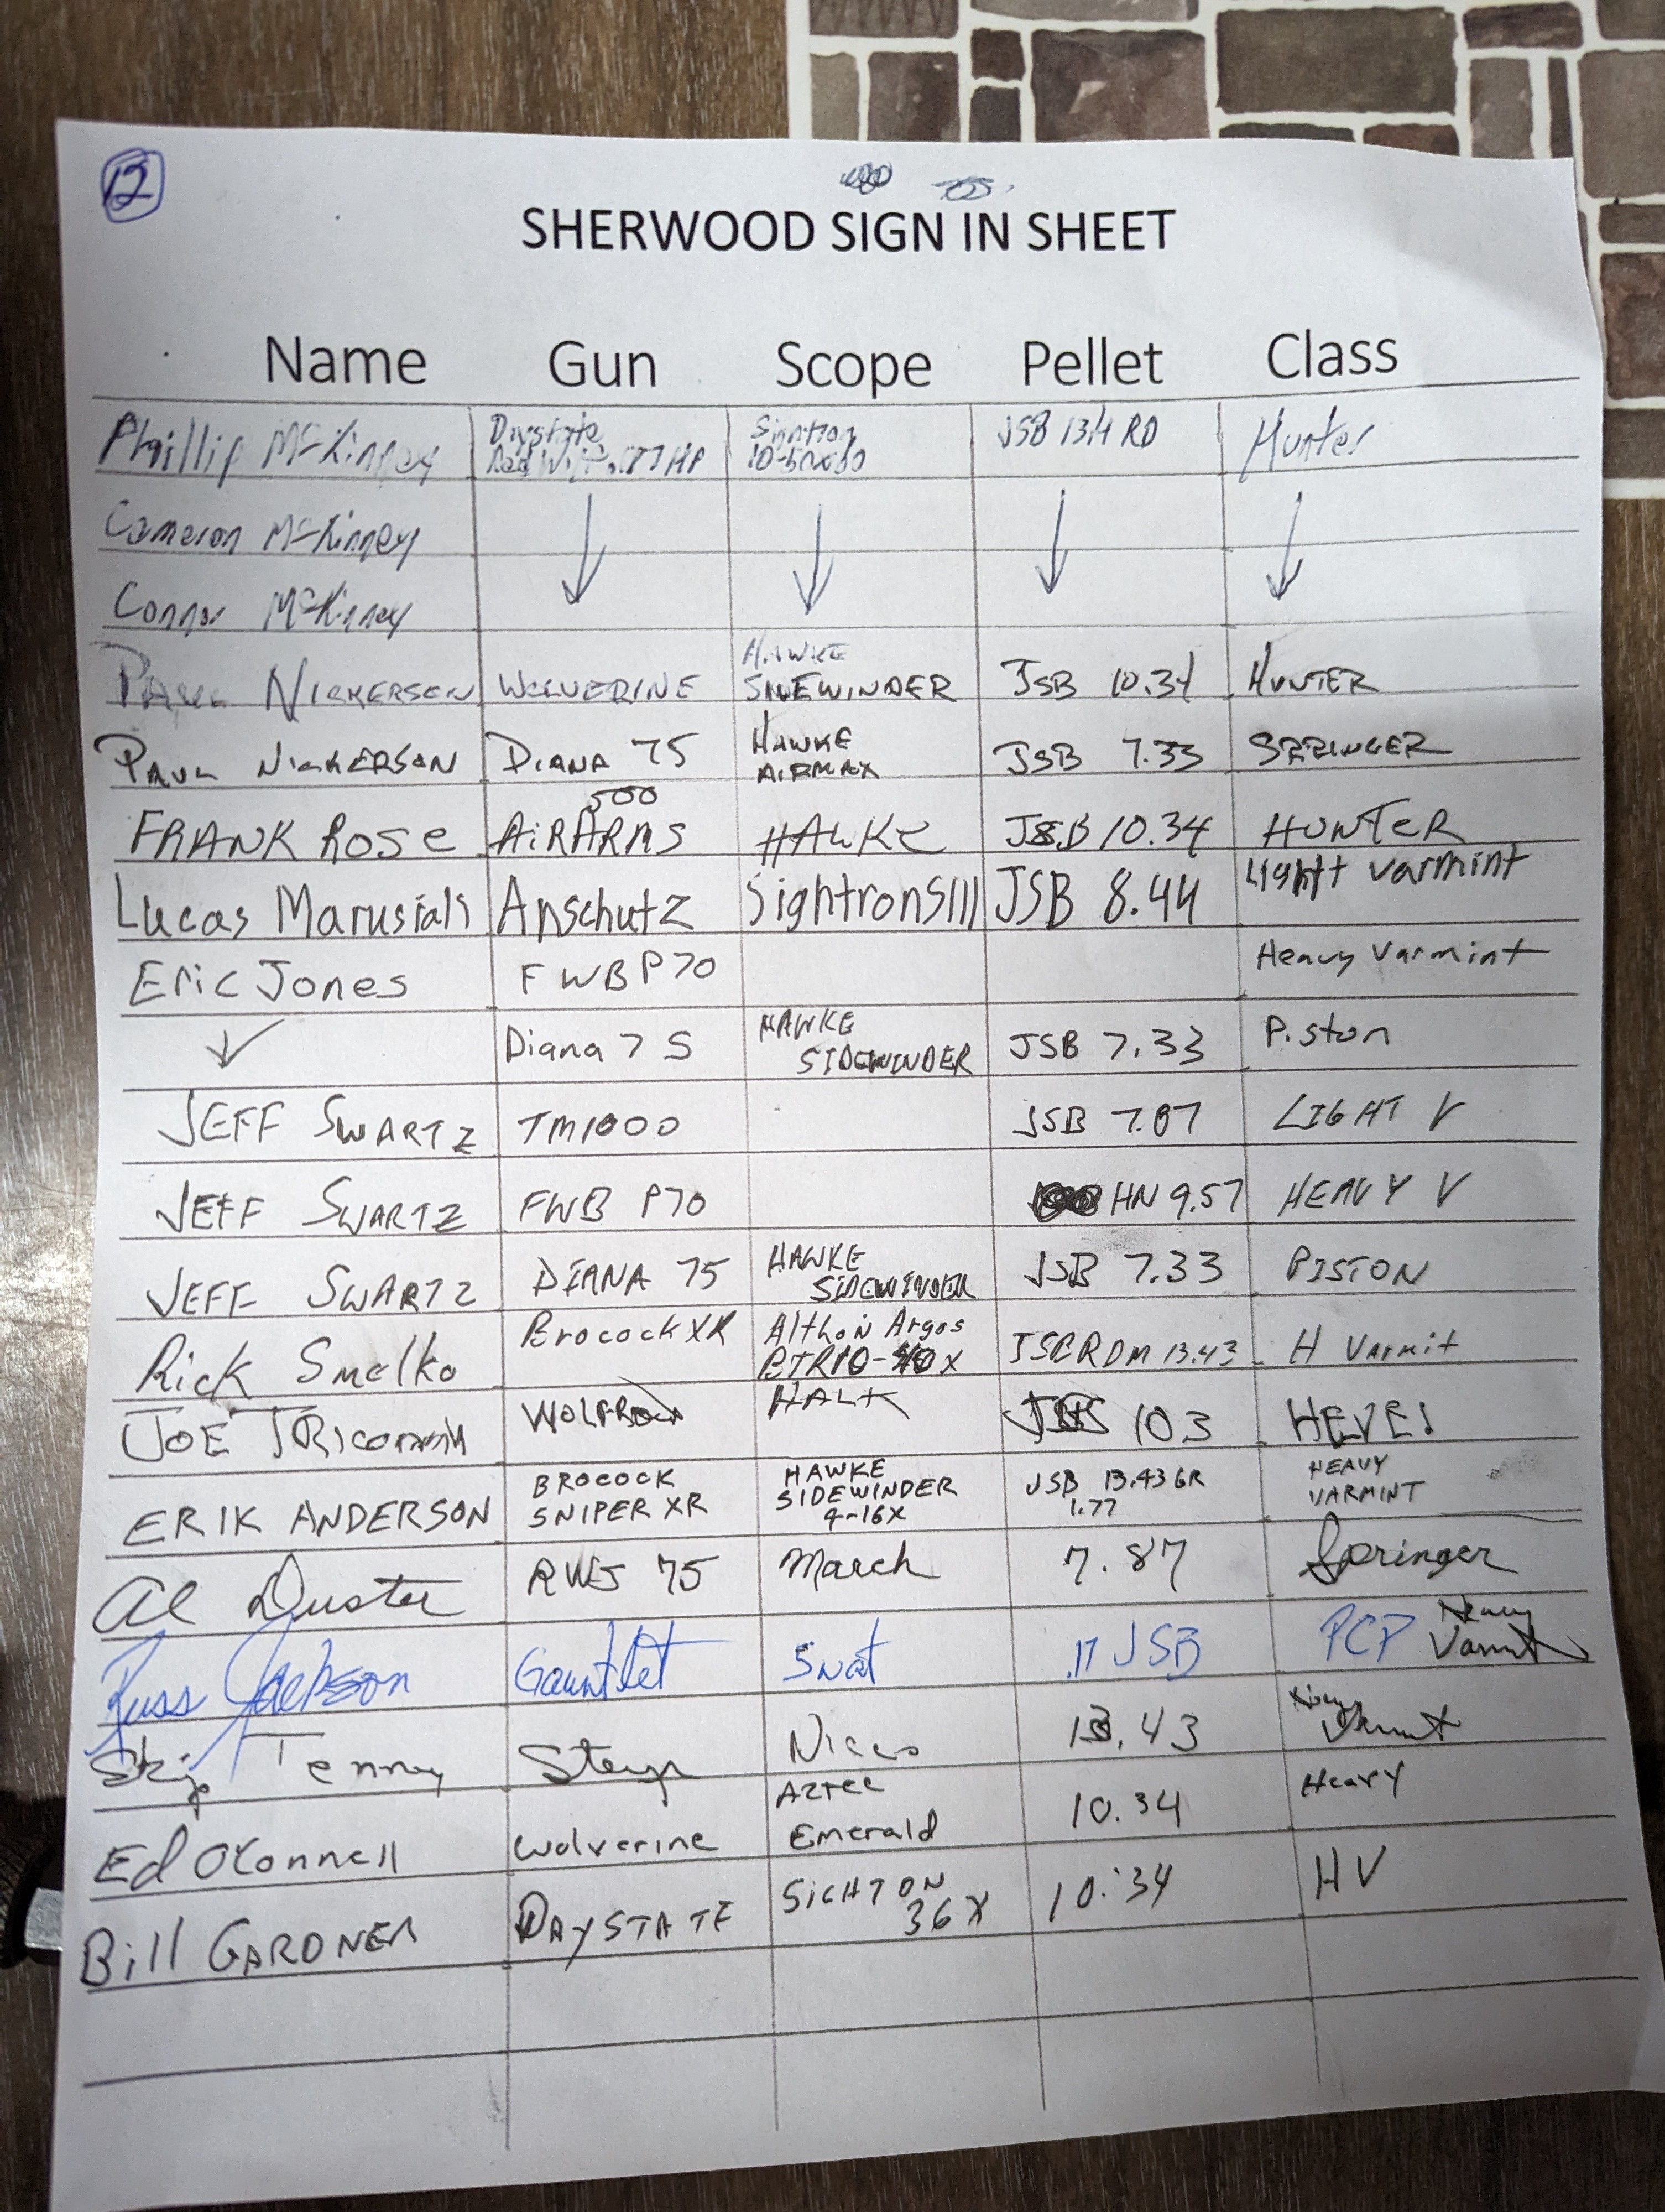 12
SHERWOOD SIGN IN SHEET
Name Gun Scope Pellet Class
Phillip McKinney Daystate Red Wolf .177 HP Sightron 10-50x60 JSB 13.4 RD Hunter
Cameron McKinney
Connor McKinney
PAUL NICKERSON WOLVERINE HAWKE SIDEWINDER JSB 10.34 HUNTER
PAUL NICKERSON DIANA 75 HAWKE AIRMAX JSB 7.33 SPRINGER
FRANK ROSE AIRARMS 500 HAWKE JSB 10.34 HUNTER
Lucas Marusiali Anschutz SightronSIII JSB 8.44 Light varmint
Eric Jones FWB P70 Heavy Varmint
Diana 75 HAWKE SIDEWINDER JSB 7.33 Piston
JEFF SWARTZ TM1000 JSB 7.87 LIGHT V
JEFF SWARTZ FWB P70 HN 9.57 HEAVY V
JEFF SWARTZ DIANA 75 HAWKE SIDEWINDER JSB 7.33 PISTON
Rick Smelko Brocock XR Althon Argos BTR10-40x JSB RDM 13.43 H Varmit
JOE HALK JSB 10 3
ERIK ANDERSON BROCOCK SNIPER XR HAWKE SIDEWINDER 4-16X JSB 13.43 GR 1.77 HEAVY VARMINT
Al Duster RWS 75 March 7.87 Springer
Russ Jackson Gauntlet Swat .17 JSB PCP Heavy Varmt
Skip Tenney Steyr 13.43
Ed O'Connell Wolverine Aztec Emerald 10.34 Heavy
Bill GARDNER DAYSTATE SIGHTON 36X 10.34 HV